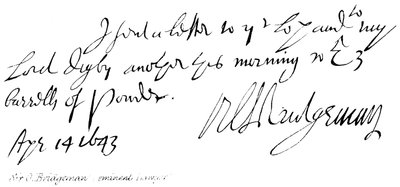 I send a letter to yr Lop and to my
Lord Digby another this morning to
barrells of Powder.
Apr 14 1643
Bridgeman
Sir O. Bridgeman eminent lawyer